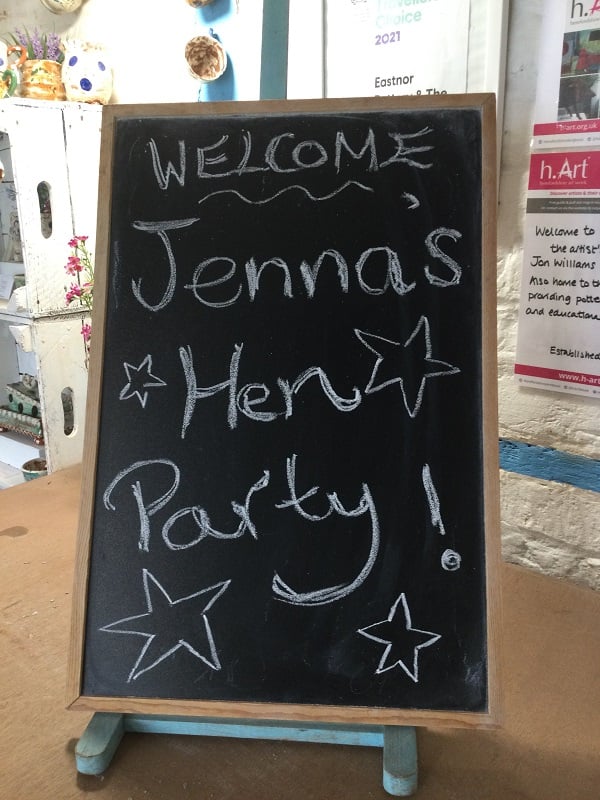 Travellers'
Choice
2021
Eastnor
Pottery & The
h.Art
h.art.org.uk
h.Art
herefordshire art week
Discover artists & their
Welcome to
the artist's
Jon Williams
Also home to th
providing potte
and educationa
Established
www.h-art
WELCOME
Jenna's
Hen
Party!